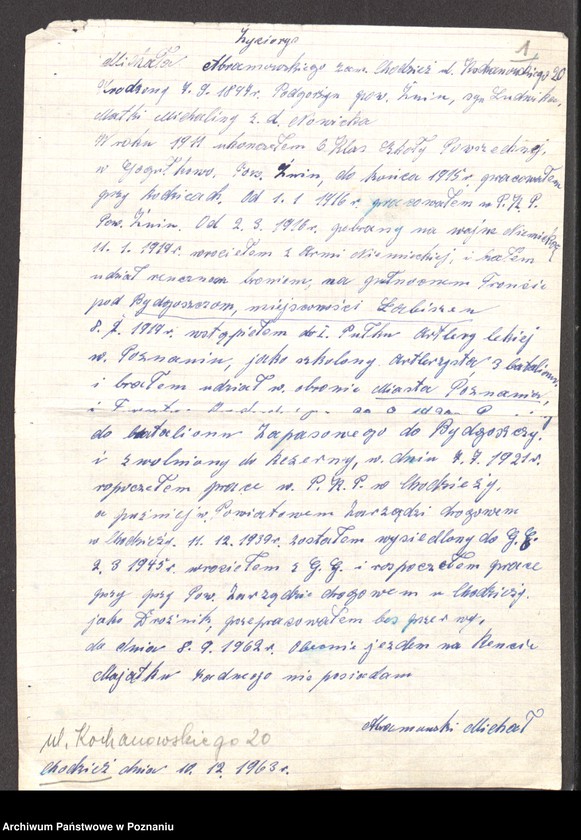 Życiorys
1.
Michała Abramowskiego zam. Chodzież ul. Kochanowskiego 20
Urodzony 7. 9. 1897r. Podgorzyn pow. Żnin, syn Ludwika,
Matki Michaliny z. d. Nowicka
W roku 1911 ukonczełem 6 klas Szkoły Powszednej,
w pow. Żnin, do końca 1915r. pracowałem
przy Rodzicach. Od 1. 1 1916r. pracowałem w P. K P.
Pow. Żnin. Od 2. 3. 1916r. pobrany na wojne niemiecką
11. 1. 1919r. wrociełem z Armi niemieckiej, i brałem
udział broniem, na Froncie
pod Bydgoszczom, miejscowości Łabiszen
1919r. wstąpiełem do 1. Pułku Artlerg lekiej
w. Poznaniu, jako szkolony Artlerzysta 3 batalionu
i brałem udział w. obronie Miasta Poznania,
do batalionu Zapasowego do Bydgoszczy.
i zwolniony do Rezerwy, w. dniu 7. 7. 1921r.
ropoczełem prace w. P. K. P. w Chodzieży,
a poźniej w. Powiatowem Zarządzi drogowem
w Chodzieży. 11. 12. 1939r. zostałem wysiedlony do G. G.
2. 3 1945r. wrociełem z G. G. i rozpoczełem prace
przy przy Pow. Zarządzie drogowem w Chodzieży,
jako Drożnik, przepracowałem bez przerwy,
do dnia 8. 9. 1962r. Obecnie jezdem na Rencie
Majątku żadnego nie posiadam
Abramowski Michał
ul. Kochanowskiego 20
Chodzież dnia 10. 12. 1963r.
Archiwum Państwowe w Poznaniu